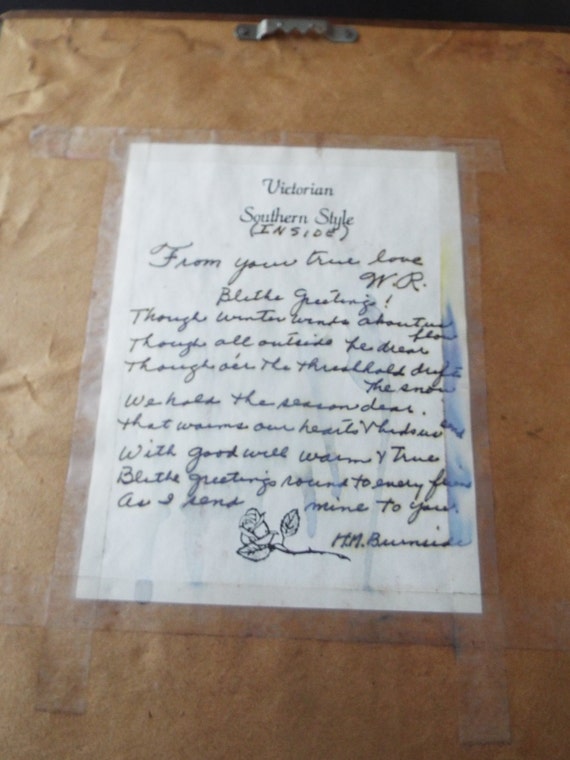 Victorian
Southern Style
(INSIDE)
From your true love
W.R.
Blithe Greetings!
Though winter winds about us
blow
Though all outside be drear
Though o'er the threshhold drifts
the snow
We hold the season dear.
that warms our hearts & bids us send
With good will warm & true
Blithe greetings round to every
As I send mine to you.
M.M. Burnside